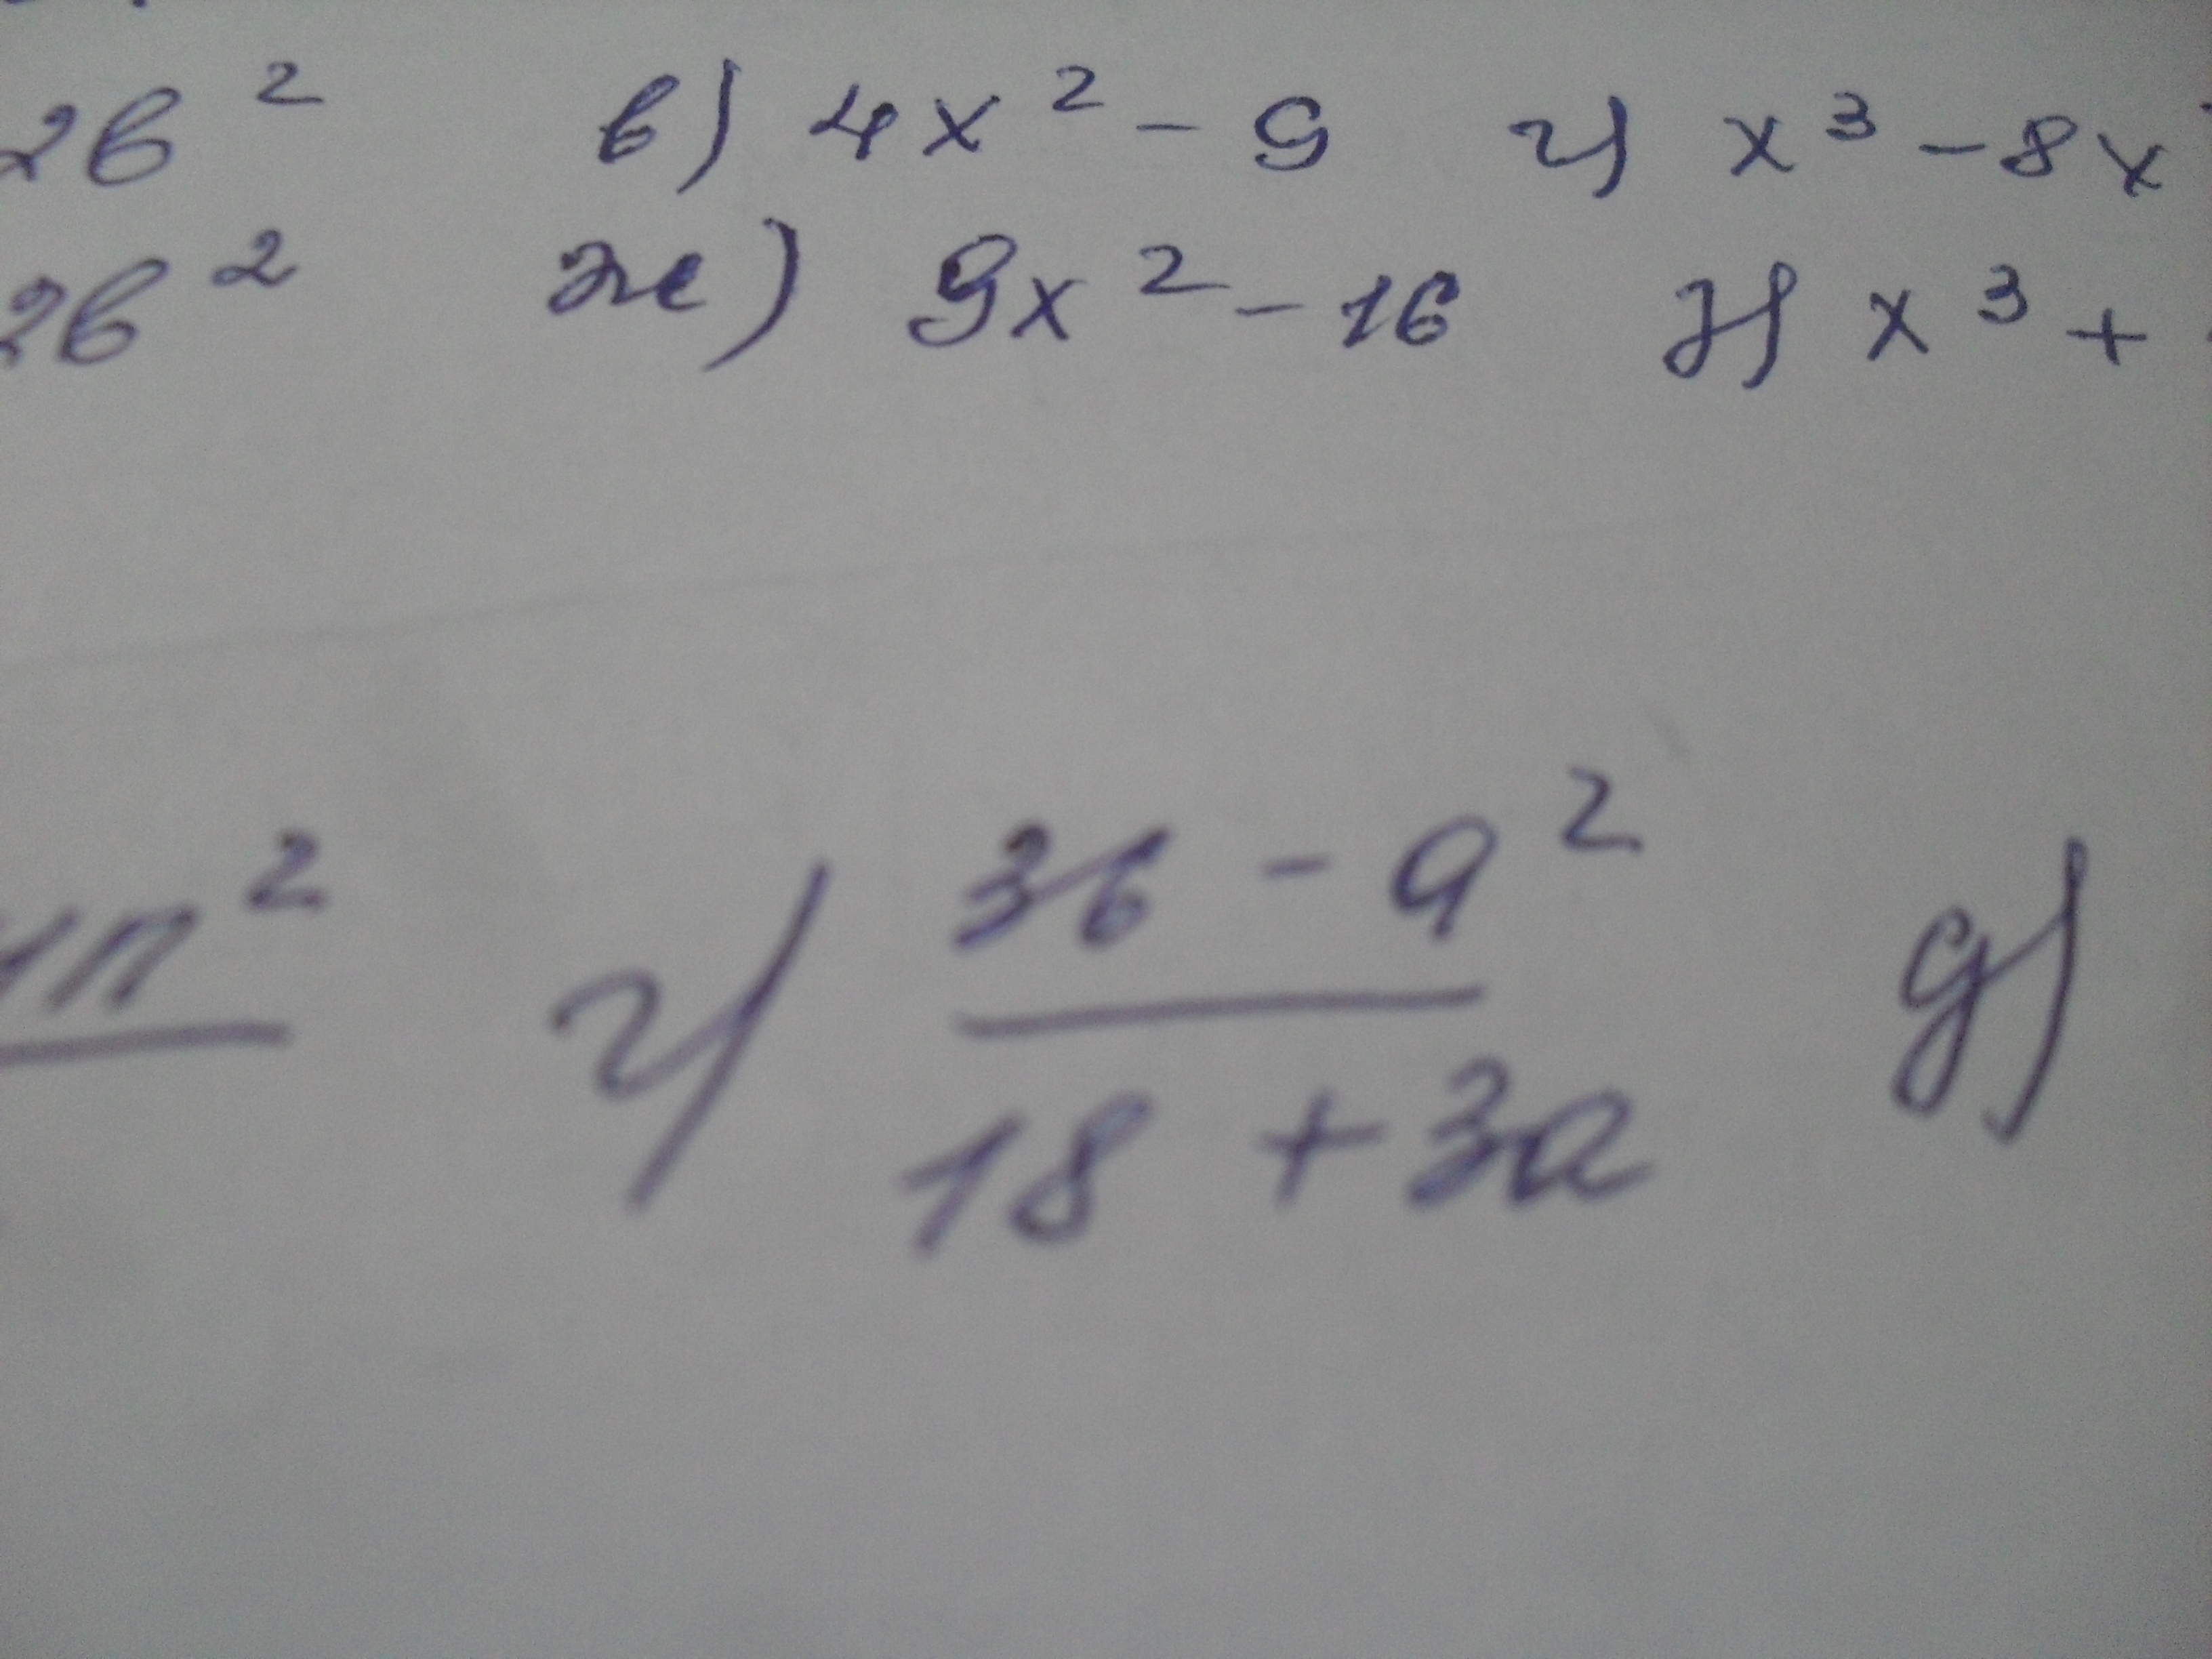 2в² в) 4x² - 9 г) x³ - 8x
2в² ж) 9x² - 16 з) x³ +
п² г) 36 - a² д)
18 + 3a